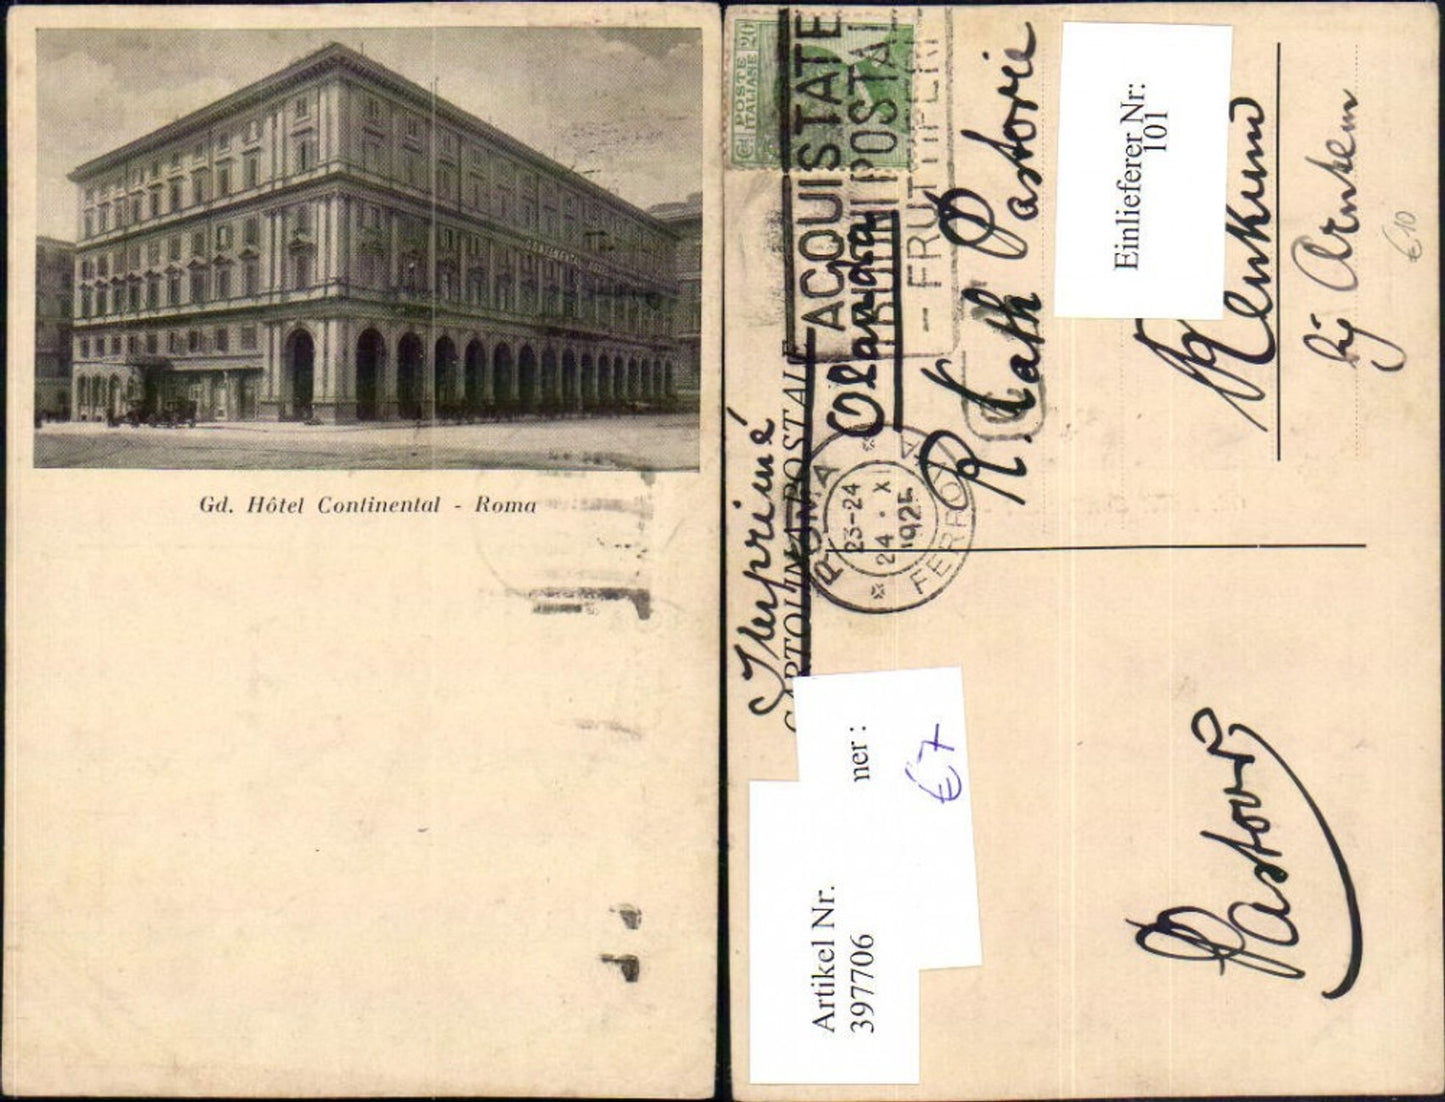 Gd. Hôtel Continental - Roma
POSTE
ITALIANE
20
Cmi
ACQUISTATE
POSTALI
- FRUTTIFERI
CARTOLINA POSTALE
Imprimé
ROMA
23-24
24 · XI
1925
FERROVIA
Olanda
R. Kath Pastorie
Renkum
bij Arnhem
€10
Pastoor
Einlieferer Nr:
101
ner :
€7
Artikel Nr.
397706